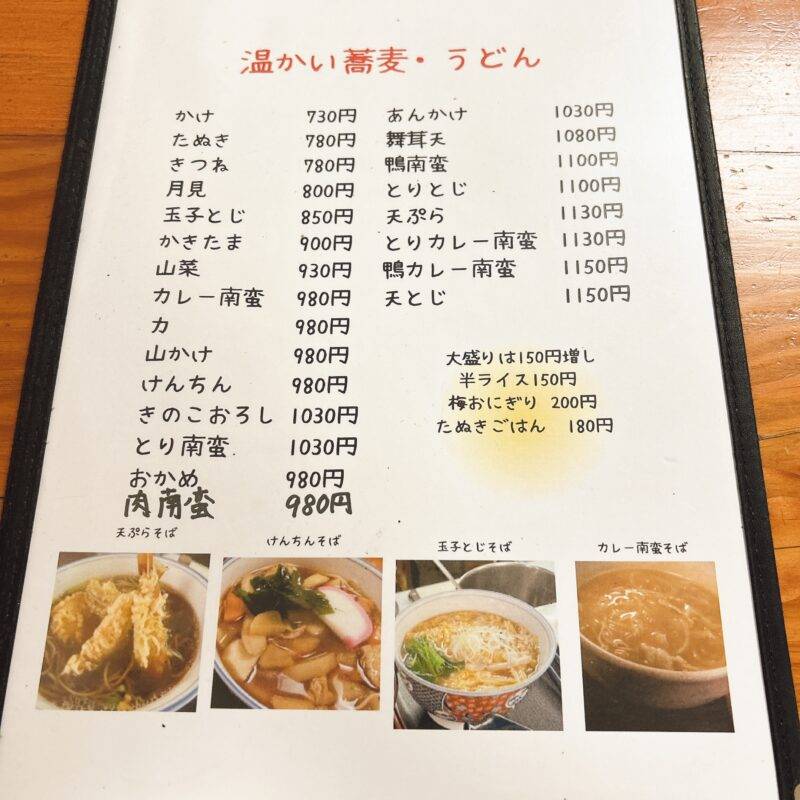 温かい蕎麦・うどん
かけ 730円
たぬき 780円
きつね 780円
月見 800円
玉子とじ 850円
かきたま 900円
山菜 930円
カレー南蛮 980円
力 980円
山かけ 980円
けんちん 980円
きのこおろし 1030円
とり南蛮 1030円
おかめ 980円
肉南蛮 980円
あんかけ 1030円
舞茸天 1080円
鴨南蛮 1100円
とりとじ 1100円
天ぷら 1130円
とりカレー南蛮 1130円
鴨カレー南蛮 1150円
天とじ 1150円
大盛りは150円増し
半ライス150円
梅おにぎり 200円
たぬきごはん 180円
天ぷらそば
けんちんそば
玉子とじそば
カレー南蛮そば